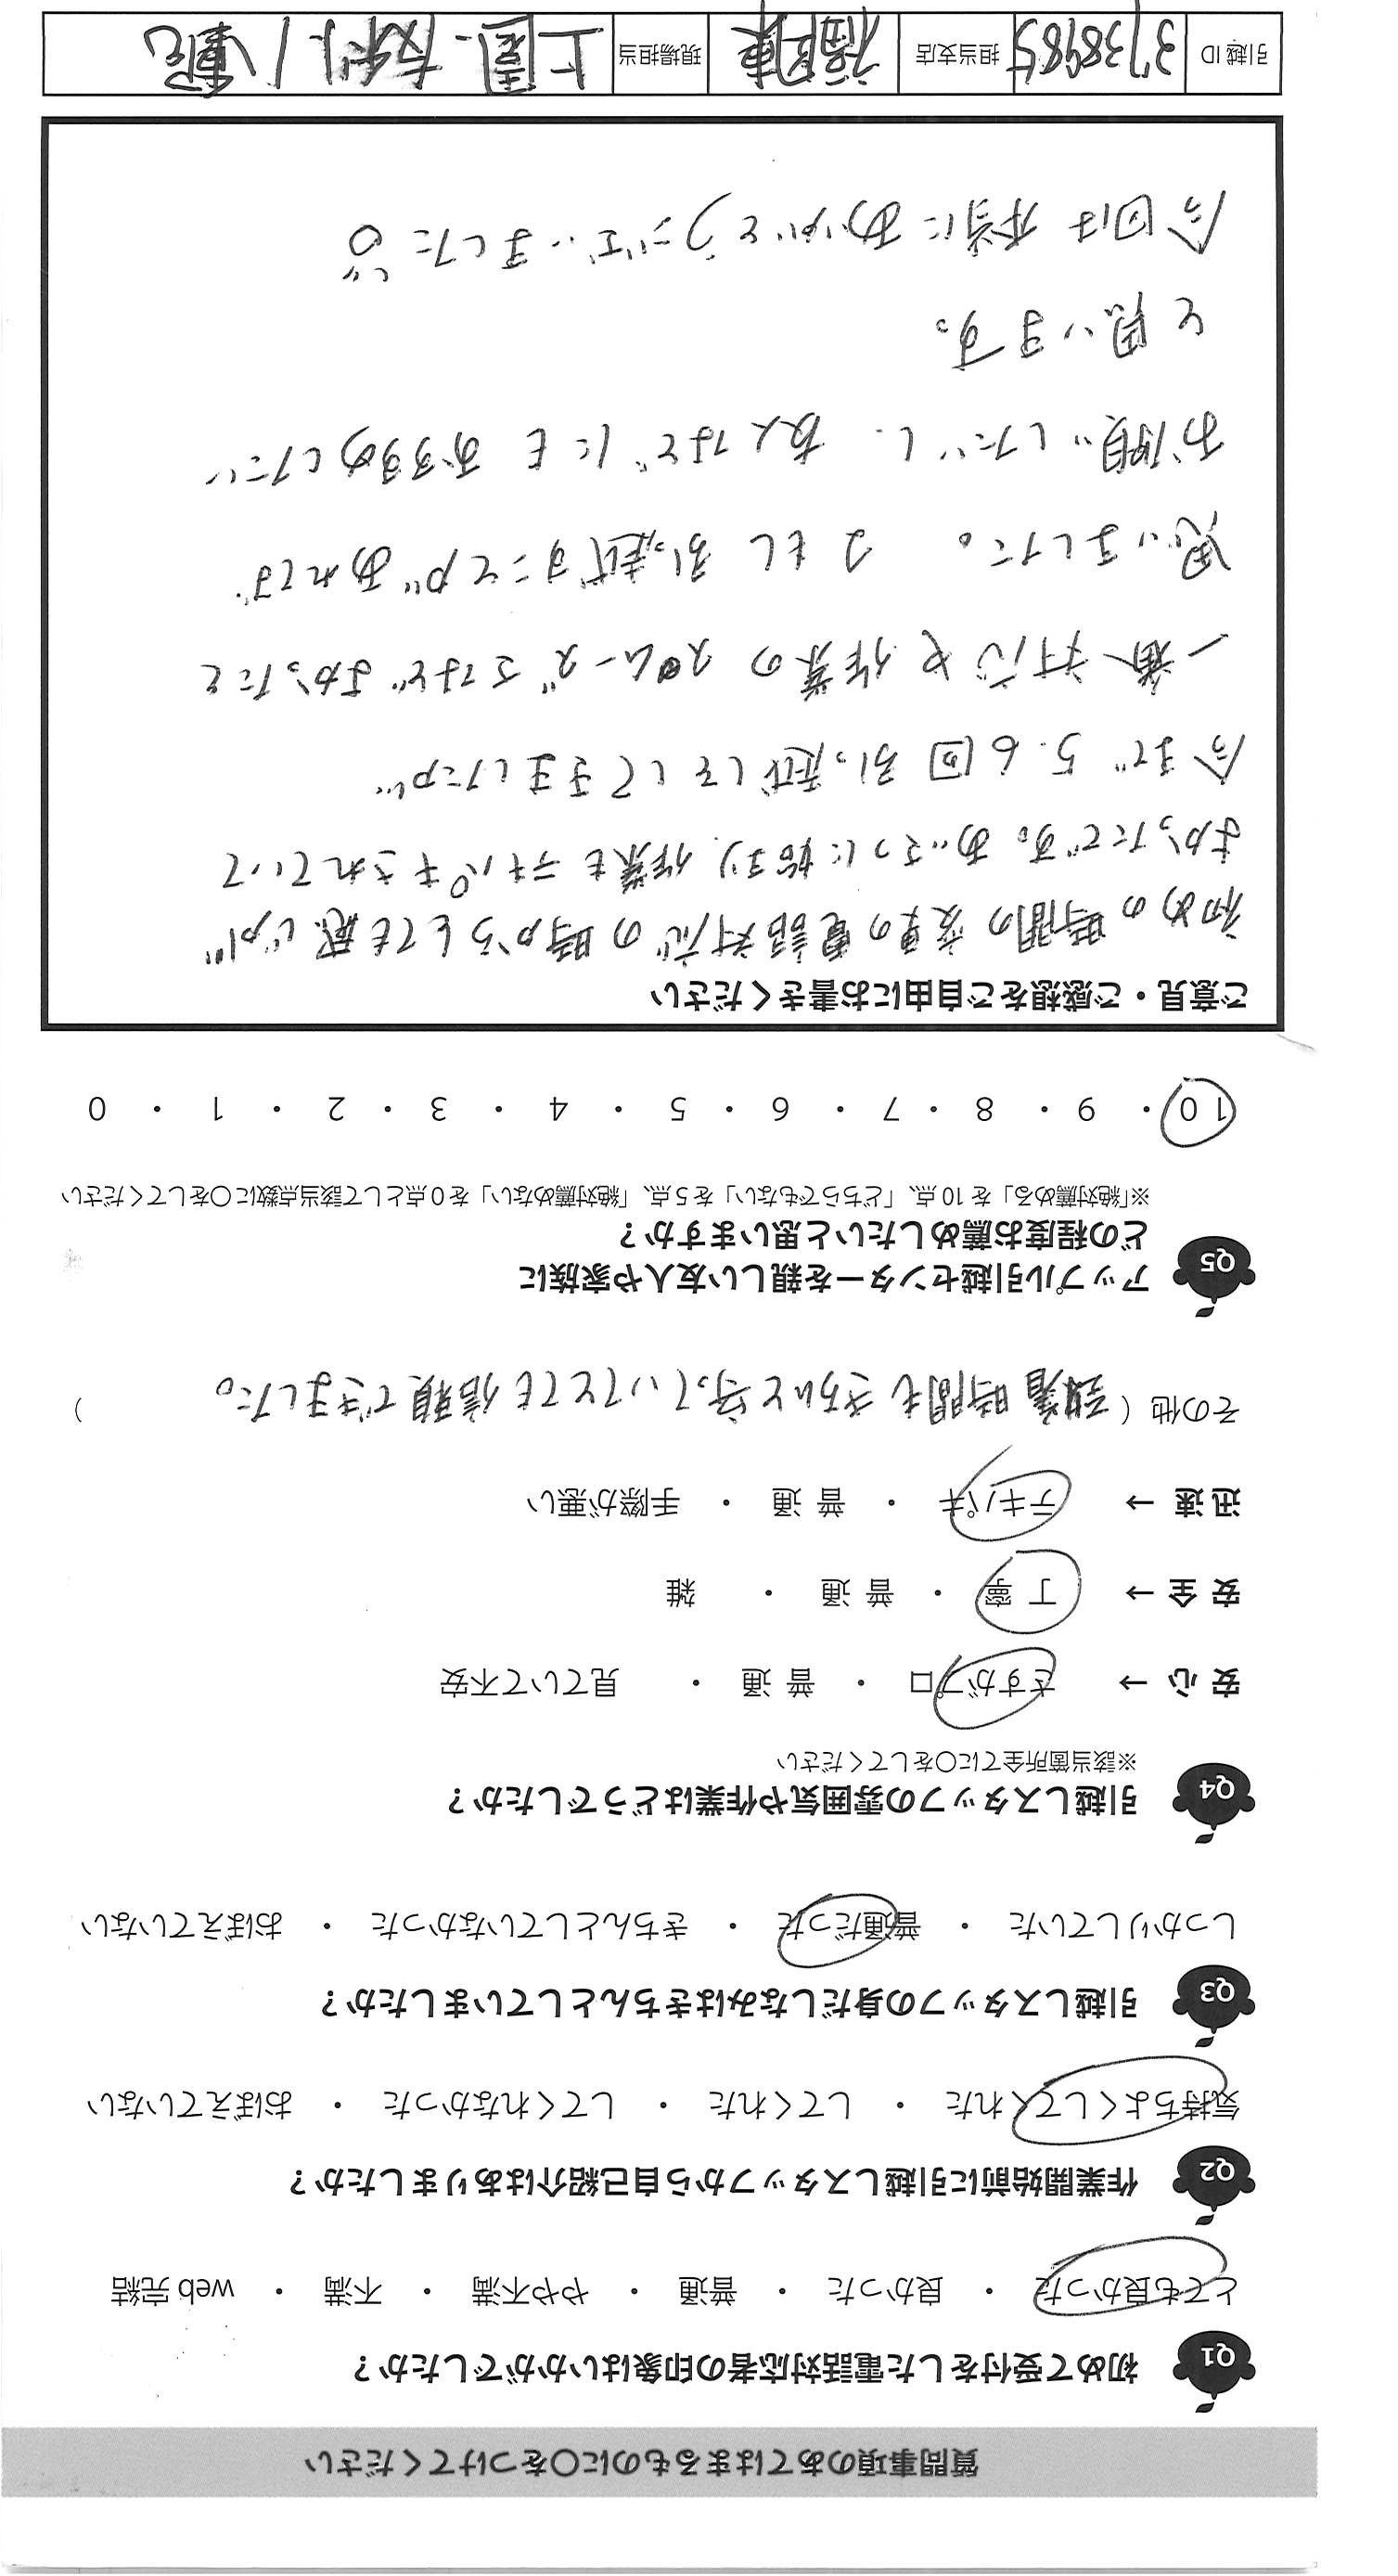 質問事項のあてはまるものに○をつけてください
Q1 初めて受付をした電話対応者の印象はいかがでしたか?
とても良かった ・ 良かった ・ 普通 ・ やや不満 ・ 不満 ・ web 完結
Q2 作業開始前に引越しスタッフから自己紹介はありましたか?
気持ちよくしてくれた ・ してくれた ・ してくれなかった ・ おぼえていない
Q3 引越しスタッフの身だしなみはきちんとしていましたか?
しっかりしていた ・ 普通だった ・ きちんとしていなかった ・ おぼえていない
Q4 引越しスタッフの雰囲気や作業はどうでしたか?
※該当箇所全てに○をしてください
安心 → さすがプロ ・ 普通 ・ 見ていて不安
安全 → 丁寧 ・ 普通 ・ 雑
迅速 → テキパキ ・ 普通 ・ 手際が悪い
その他 ( 到着時間もきちんと守っていてとても信頼できました。 )
Q5 アップル引越センターを親しい友人や家族に
どの程度お薦めしたいと思いますか?
※「絶対薦める」を 10 点、「どちらでもない」を 5 点、「絶対薦めない」を 0 点として該当点数に○をしてください
10 ・ 9 ・ 8 ・ 7 ・ 6 ・ 5 ・ 4 ・ 3 ・ 2 ・ 1 ・ 0
ご意見・ご感想をご自由にお書きください
初めの時間の変更の電話対応の時からとても感じが
よかったです。あいさつに始まり、作業もテキパキされていて
今まで 5.6回 引っ越しをしてきましたが
一番 対応や作業のスムーズさなどよかったと
思いました。 またもし引っ越すことがあれば
お願いしたいし、友人などにもおすすめしたい
と思います。
今回は本当にありがとうございました
引越 ID 3738985 担当支店 福岡東 現場担当 上園、友利